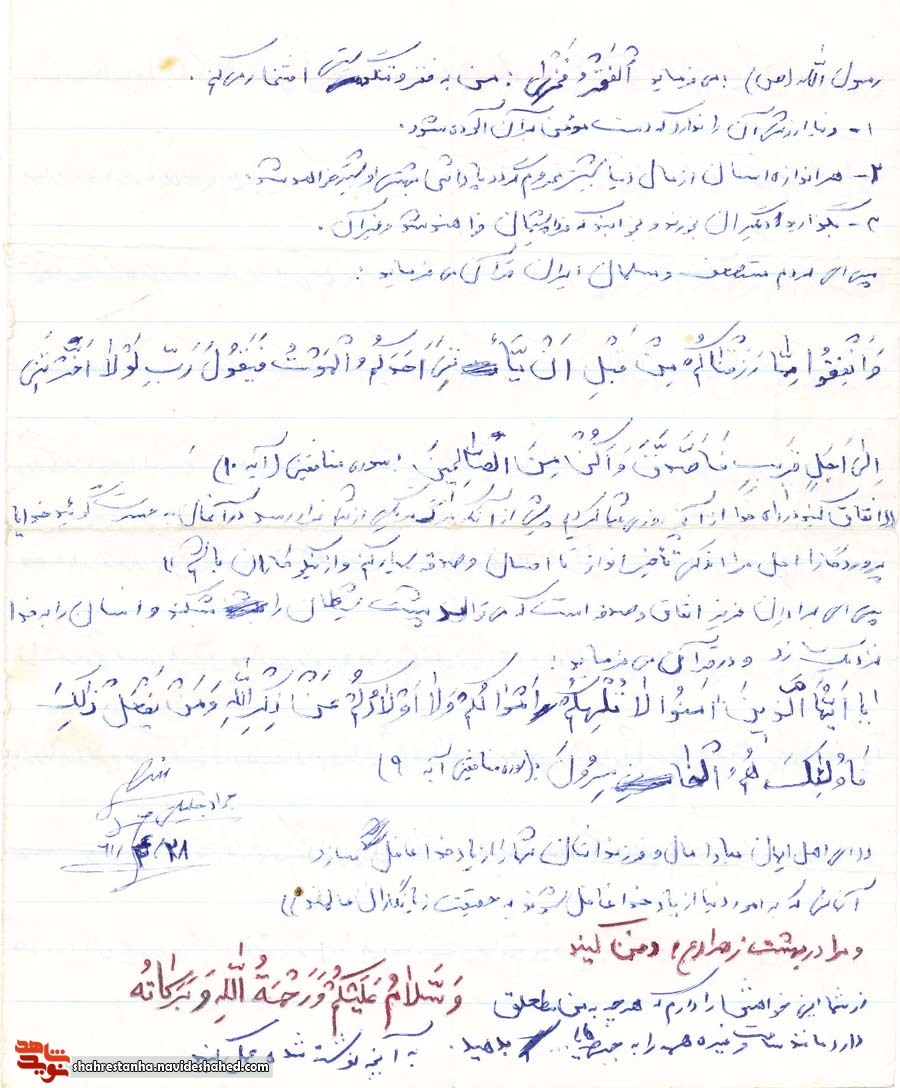 رسول الله (ص) می فرماید اَلْفَقْرُ فَخْری : من به فقر و تنگدستی افتخار می کنم .
۱- دنیا ارزش آن را ندارد که دست مؤمن به آن آلوده شود .
۲- هر اندازه انسان از مال دنیا بیشتر محروم گردد پاداش بهشتی او بیشتر خواهد شد .
۳- بگذارید دیگران بخورند و بخوابند که خدا پشیمان
پس ای مردم مستضعف و مسلمان ایران قرآن می فرماید :
وَ اَنْفِقُوا مِمّا رَزَقْناكُمْ مِنْ قَبْلِ اَنْ يَأْتِيَ اَحَدَكُمُ الْمَوْتُ فَيَقُولَ رَبِّ لَوْلا اَخَّرْتَنِي
اِلى اَجَلٍ قَرِيبٍ فَاَصَّدَّقَ وَ اَكُنْ مِنَ الصّالِحِينَ : سوره منافقین (آیه ۱۰)
((انفاق کنید در راه خدا از آنچه روزی شما کردیم پیش از آنکه مرگ بر یکی از شما فرا رسد در آنحال به حسرت گوئید خدایا
پروردگارا اجل مرا اندکی تأخیر انداز تا احسان و صدقه بسیار کنم و از نیکوکاران باشم ))
پس ای برادران عزیز انفاق و صدقه است که می تواند پشت شیطان را بشکند و انسان را به خدا
نزدیک سازد و در قرآن می فرماید :
يا اَيُّهَا الَّذِينَ امَنُوا لا تُلْهِكُمْ اَمْوالُكُمْ وَلا اَوْلادُكُمْ عَنْ ذِكْرِ اللّهِ وَ مَنْ يَفْعَلْ ذلِكَ
فَاُولئِكَ هُمُ الْخاسِرُونَ : (سوره منافقین آیه ۹)
۲۸
((ای اهل ایمان مبادا مال و فرزندانتان شما را از یاد خدا غافل سازد
آنانی که به امور دنیا از یاد خدا غافل شوند به حقیقت زیانکاران عالمند ))
و مرا در بهشت زهرا (ع) دفن کنید
از شما این خواهش را دارم که هر چه به من متعلق
وَ سَّلامُ عَلَيْكُمْ وَ رَحْمَةُ اللّهِ وَ بَرَكاتُه
دارد مانند ساعت و غیره همه را به بدهید . به آنچه نوشته شده عمل کنید
نوید شاهد
shahrestanha.navideshahed.com